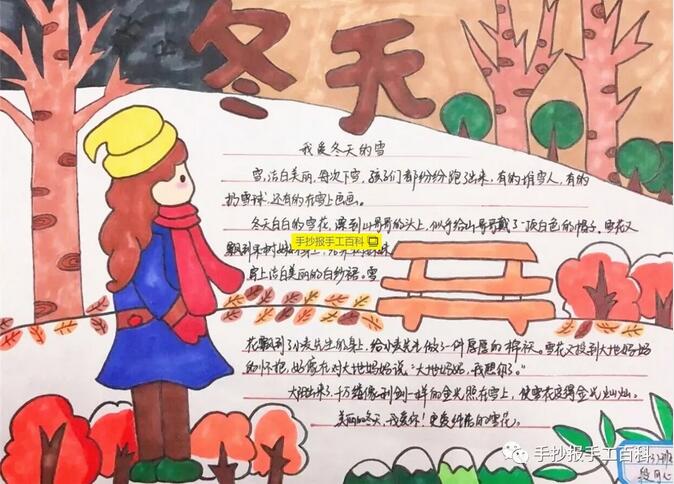 冬天
我爱冬天的雪
雪,洁白美丽,每次下雪,孩子们都纷纷跑出来,有的堆雪人,有的
扔雪球,还有的在雪上画画。
冬天白白的雪花,飘到山哥哥的头上,似乎给山哥哥戴了一顶白色的帽子。雪花又
飘到
手抄报手工百科
穿上洁白美丽的白纱裙。雪
花飘到了小麦先生的身上,给小麦先生做了一件厚厚的棉袄。雪花又投到大地妈妈
的怀抱,好像在对大地妈妈说:“大地妈妈,我想你了。”
太阳出来了,千万缕像利剑一样的金光照在雪上,使雪花变得金光灿灿。
美丽的冬天,我爱你!更爱纤纤的雪花。
手抄报手工百科